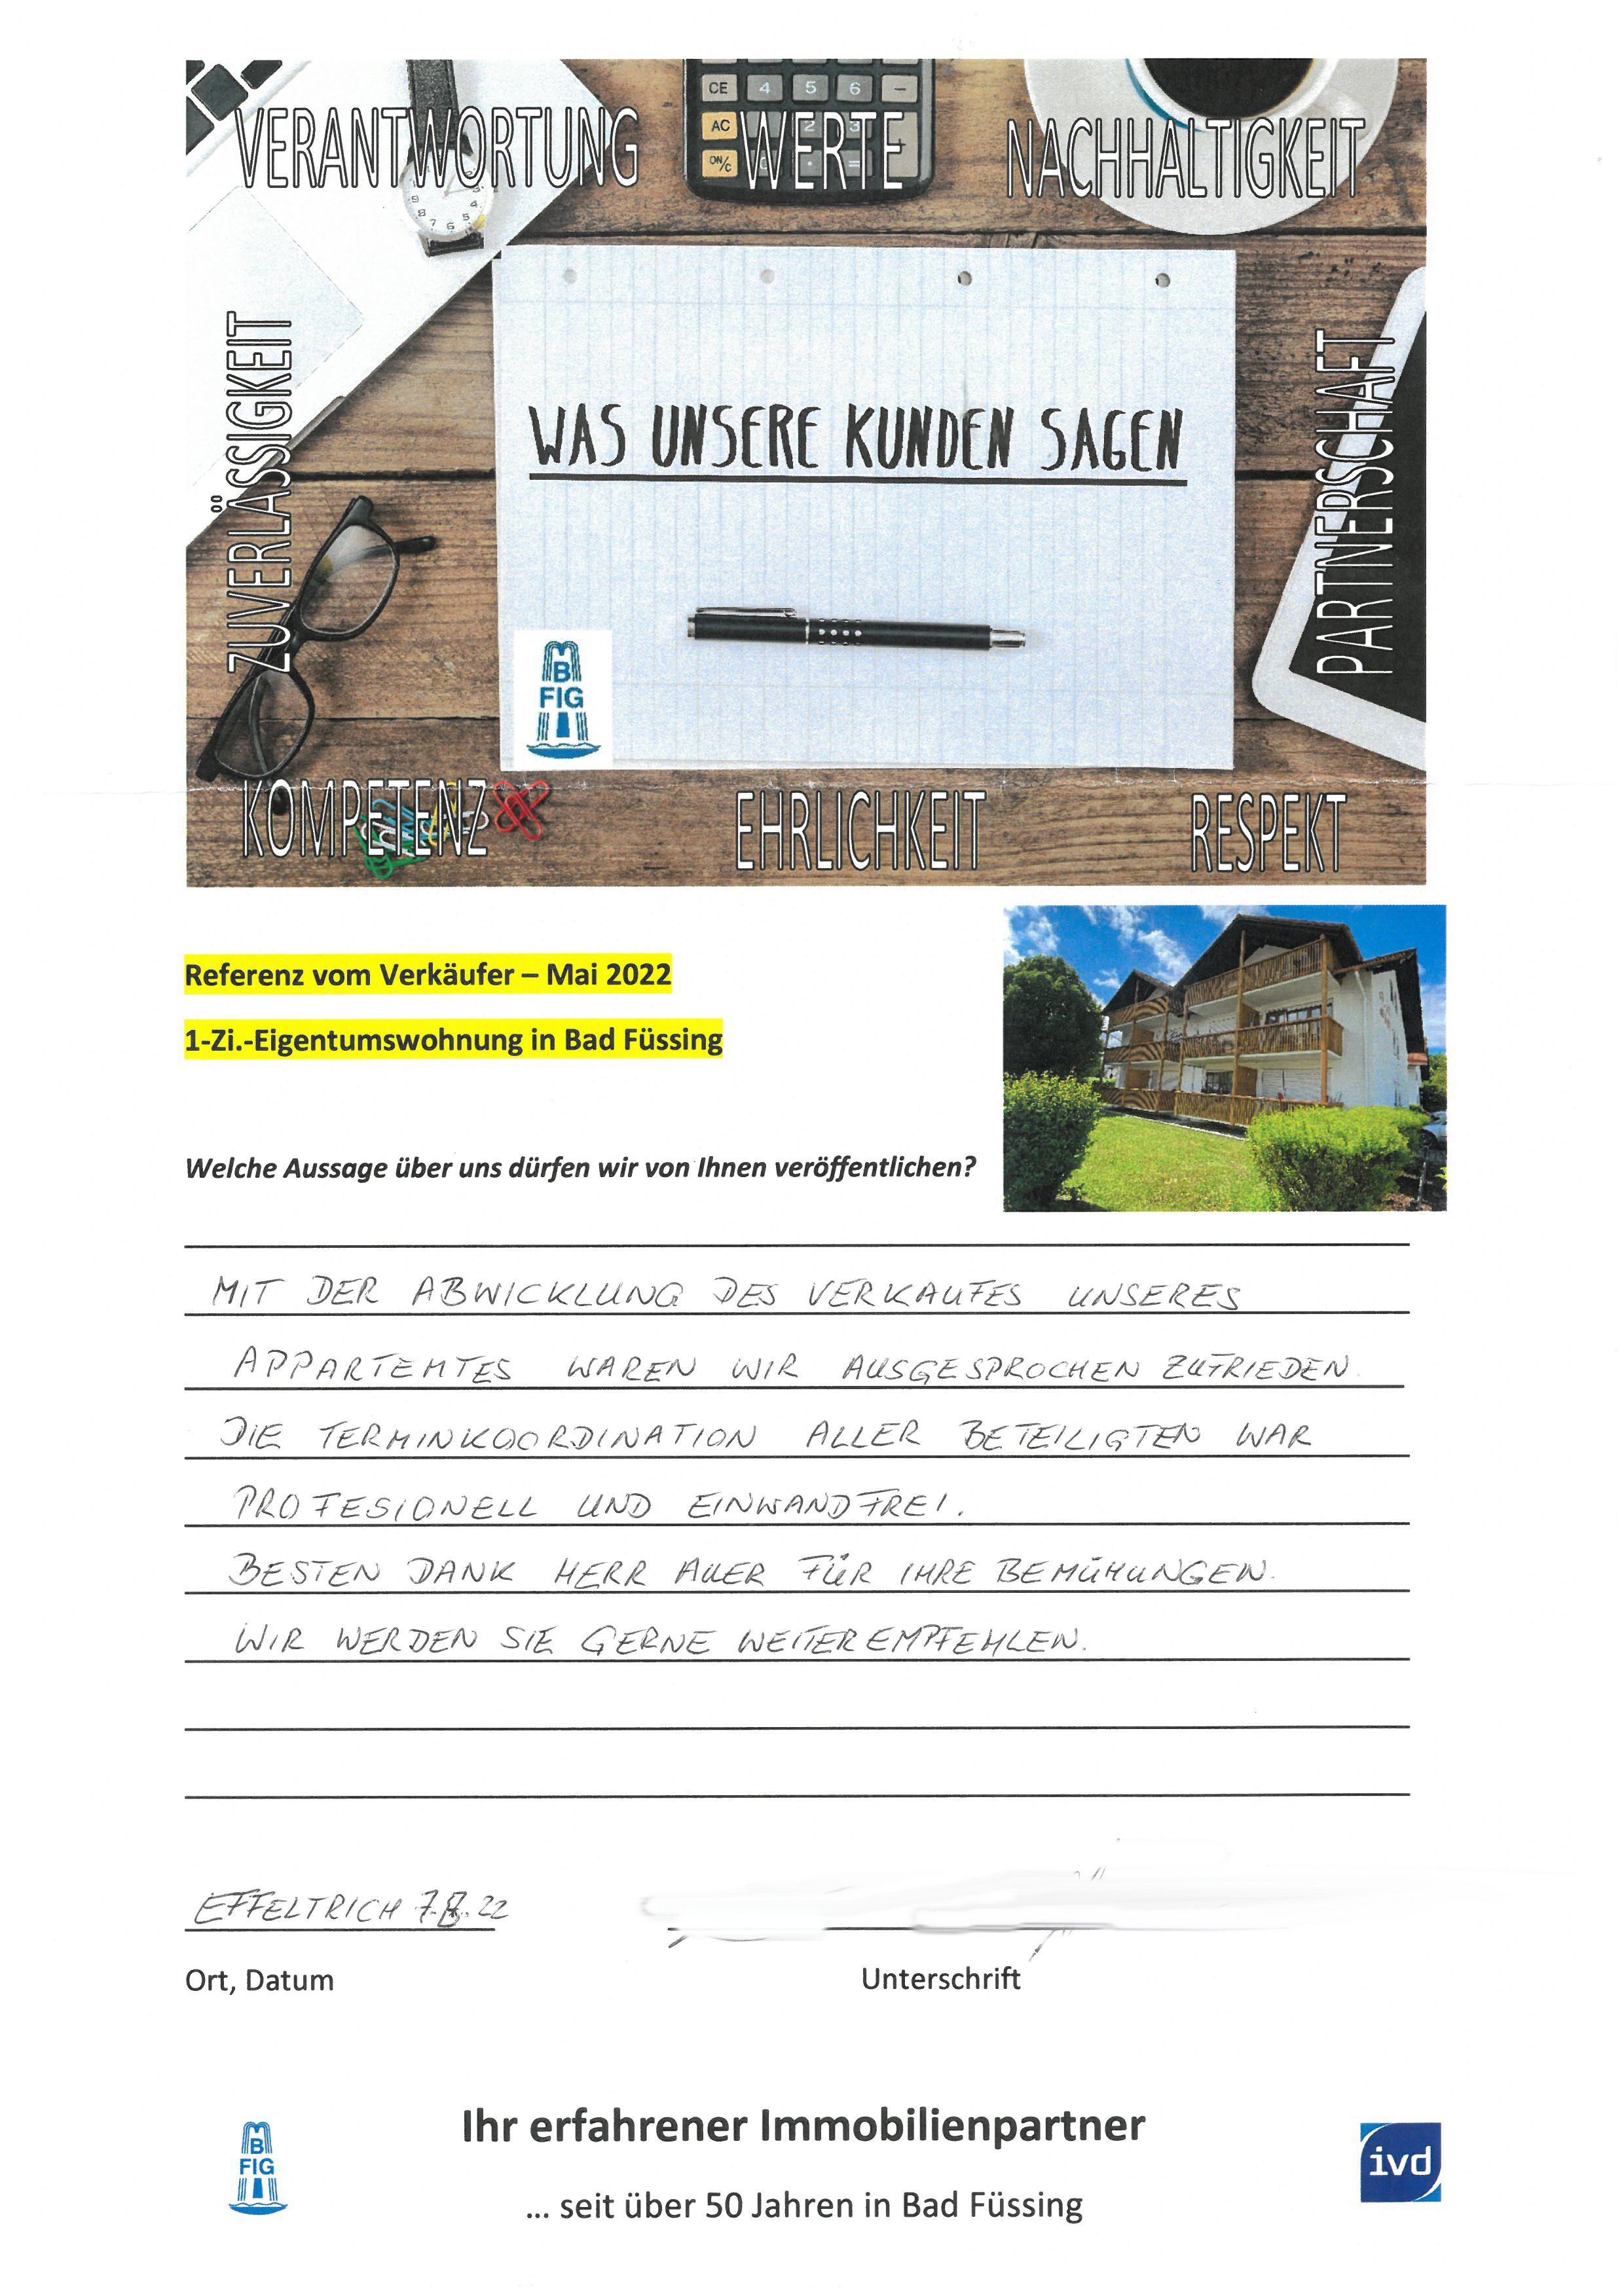 VERANTWORTUNG WERTE NACHHALTIGKEIT
CE 4 5 6 −
AC 2 3
ON/C
ZUVERLÄSSIGKEIT
WAS UNSERE KUNDEN SAGEN
PARTNERSCHAFT
B
FIG
KOMPETENZ EHRLICHKEIT RESPEKT
Referenz vom Verkäufer – Mai 2022
1-Zi.-Eigentumswohnung in Bad Füssing
Welche Aussage über uns dürfen wir von Ihnen veröffentlichen?
MIT DER ABWICKLUNG DES VERKAUFES UNSERES
APPARTEMTES WAREN WIR AUSGESPROCHEN ZUFRIEDEN.
DIE TERMINKOORDINATION ALLER BETEILIGTEN WAR
PROFESIONELL UND EINWANDFREI.
BESTEN DANK HERR FÜR IHRE BEMÜHUNGEN.
WIR WERDEN SIE GERNE WEITEREMPFEHLEN.
EFFELTRICH 22
Ort, Datum Unterschrift
B
FIG
Ihr erfahrener Immobilienpartner
... seit über 50 Jahren in Bad Füssing
ivd